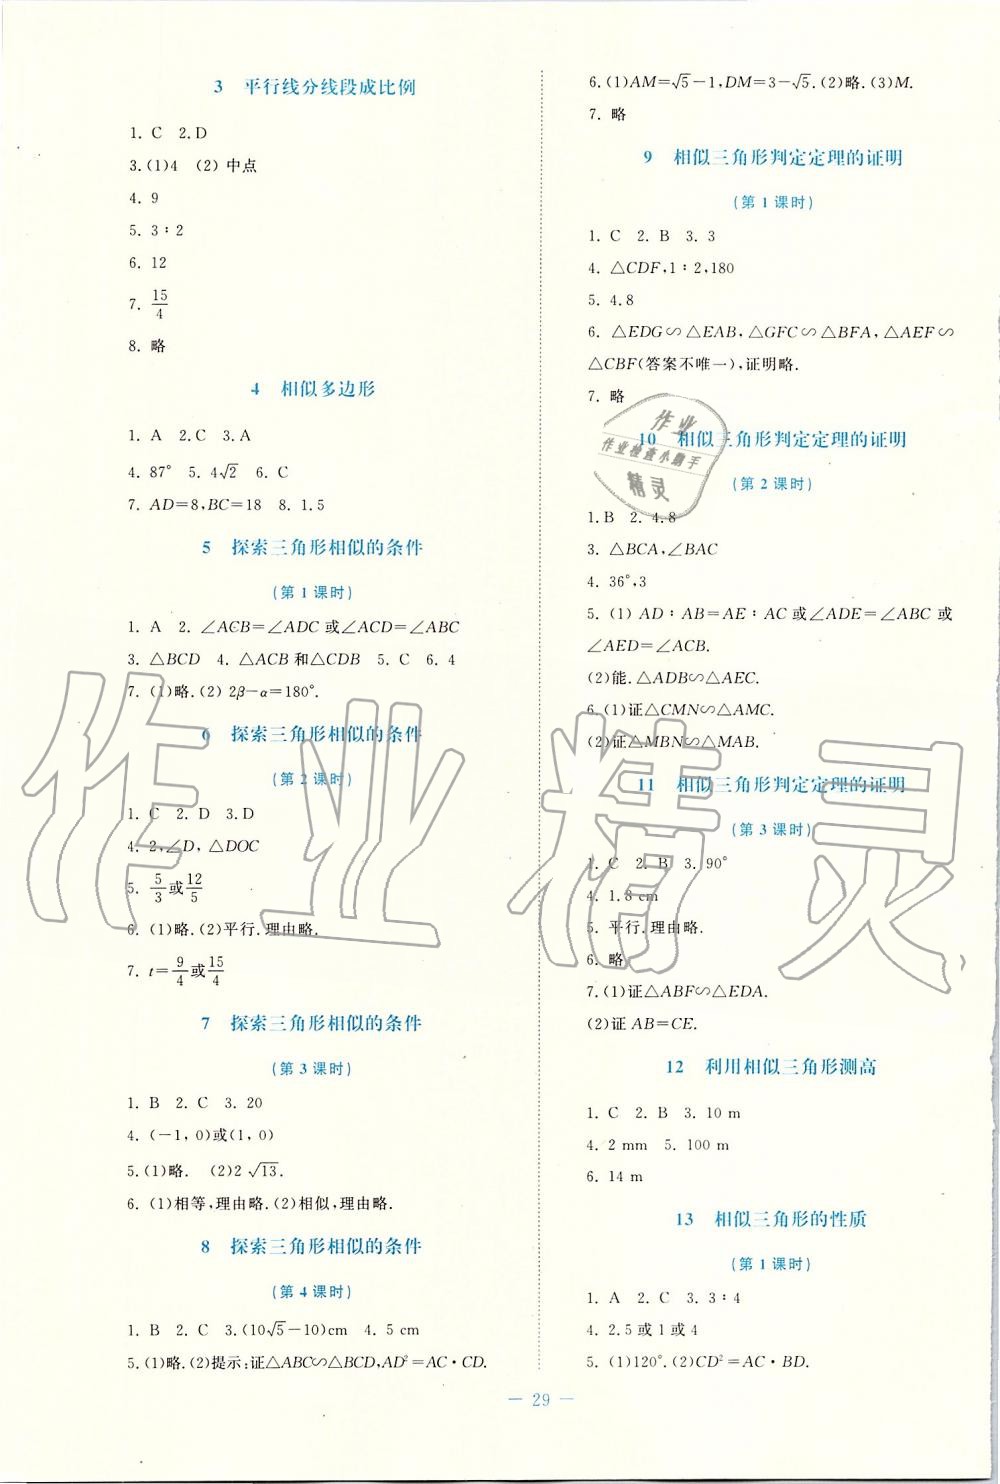 3 平行线分线段成比例
1. C 2. D
3.(1)4 (2) 中点
4. 9
5. 3∶2
6. 12
7. 15/4
8. 略
4 相似多边形
1. A 2.C 3.A
4. 87° 5. 4√2 6. C
7. AD=8,BC=18 8. 1.5
5 探索三角形相似的条件
(第1课时)
1. A 2. ∠ACB=∠ADC 或∠ACD=∠ABC
3. △BCD 4. △ACB 和△CDB 5. C 6. 4
7. (1)略.(2) 2β-α=180°.
6 探索三角形相似的条件
(第2课时)
1. C 2. D 3.D
4. 2,∠D, △DOC
5. 5/3或12/5
6. (1)略.(2)平行.理由略.
7. t=9/4或15/4
7 探索三角形相似的条件
(第3课时)
1. B 2. C 3. 20
4. (-1, 0)或(1, 0)
5.(1)略. (2)2√13.
6. (1)相等,理由略.(2)相似,理由略.
8 探索三角形相似的条件
(第4课时)
1. B 2. C 3.(10√5-10)cm 4. 5 cm
5.(1)略.(2)提示:证△ABC∽△BCD,AD²=AC·CD.
6.(1)AM=√5-1,DM=3-√5.(2)略.(3)M.
7. 略
9 相似三角形判定定理的证明
(第1课时)
1. C 2. B 3. 3
4. △CDF,1∶2,180
5. 4.8
6. △EDG∽△EAB, △GFC∽△BFA, △AEF∽
△CBF(答案不唯一),证明略.
7. 略
10 相似三角形判定定理的证明
(第2课时)
1.B 2. 4.8
3. △BCA,∠BAC
4. 36°,3
5. (1) AD∶AB=AE∶AC 或∠ADE=∠ABC 或
∠AED=∠ACB.
(2)能.△ADB∽△AEC.
6.(1)证△CMN∽△AMC.
(2)证△MBN∽△MAB.
11 相似三角形判定定理的证明
(第3课时)
1. C 2. B 3. 90°
4. 1.8 cm
5. 平行.理由略.
6. 略
7.(1)证△ABF∽△EDA.
(2)证 AB=CE.
12 利用相似三角形测高
1. C 2. B 3. 10 m
4. 2 mm 5. 100 m
6. 14 m
13 相似三角形的性质
(第1课时)
1. A 2. C 3. 3∶4
4. 2.5 或 1 或 4
5. (1)120°.(2)CD²=AC·BD.
— 29 —
作业
作业检查小助手
精灵
作业精灵